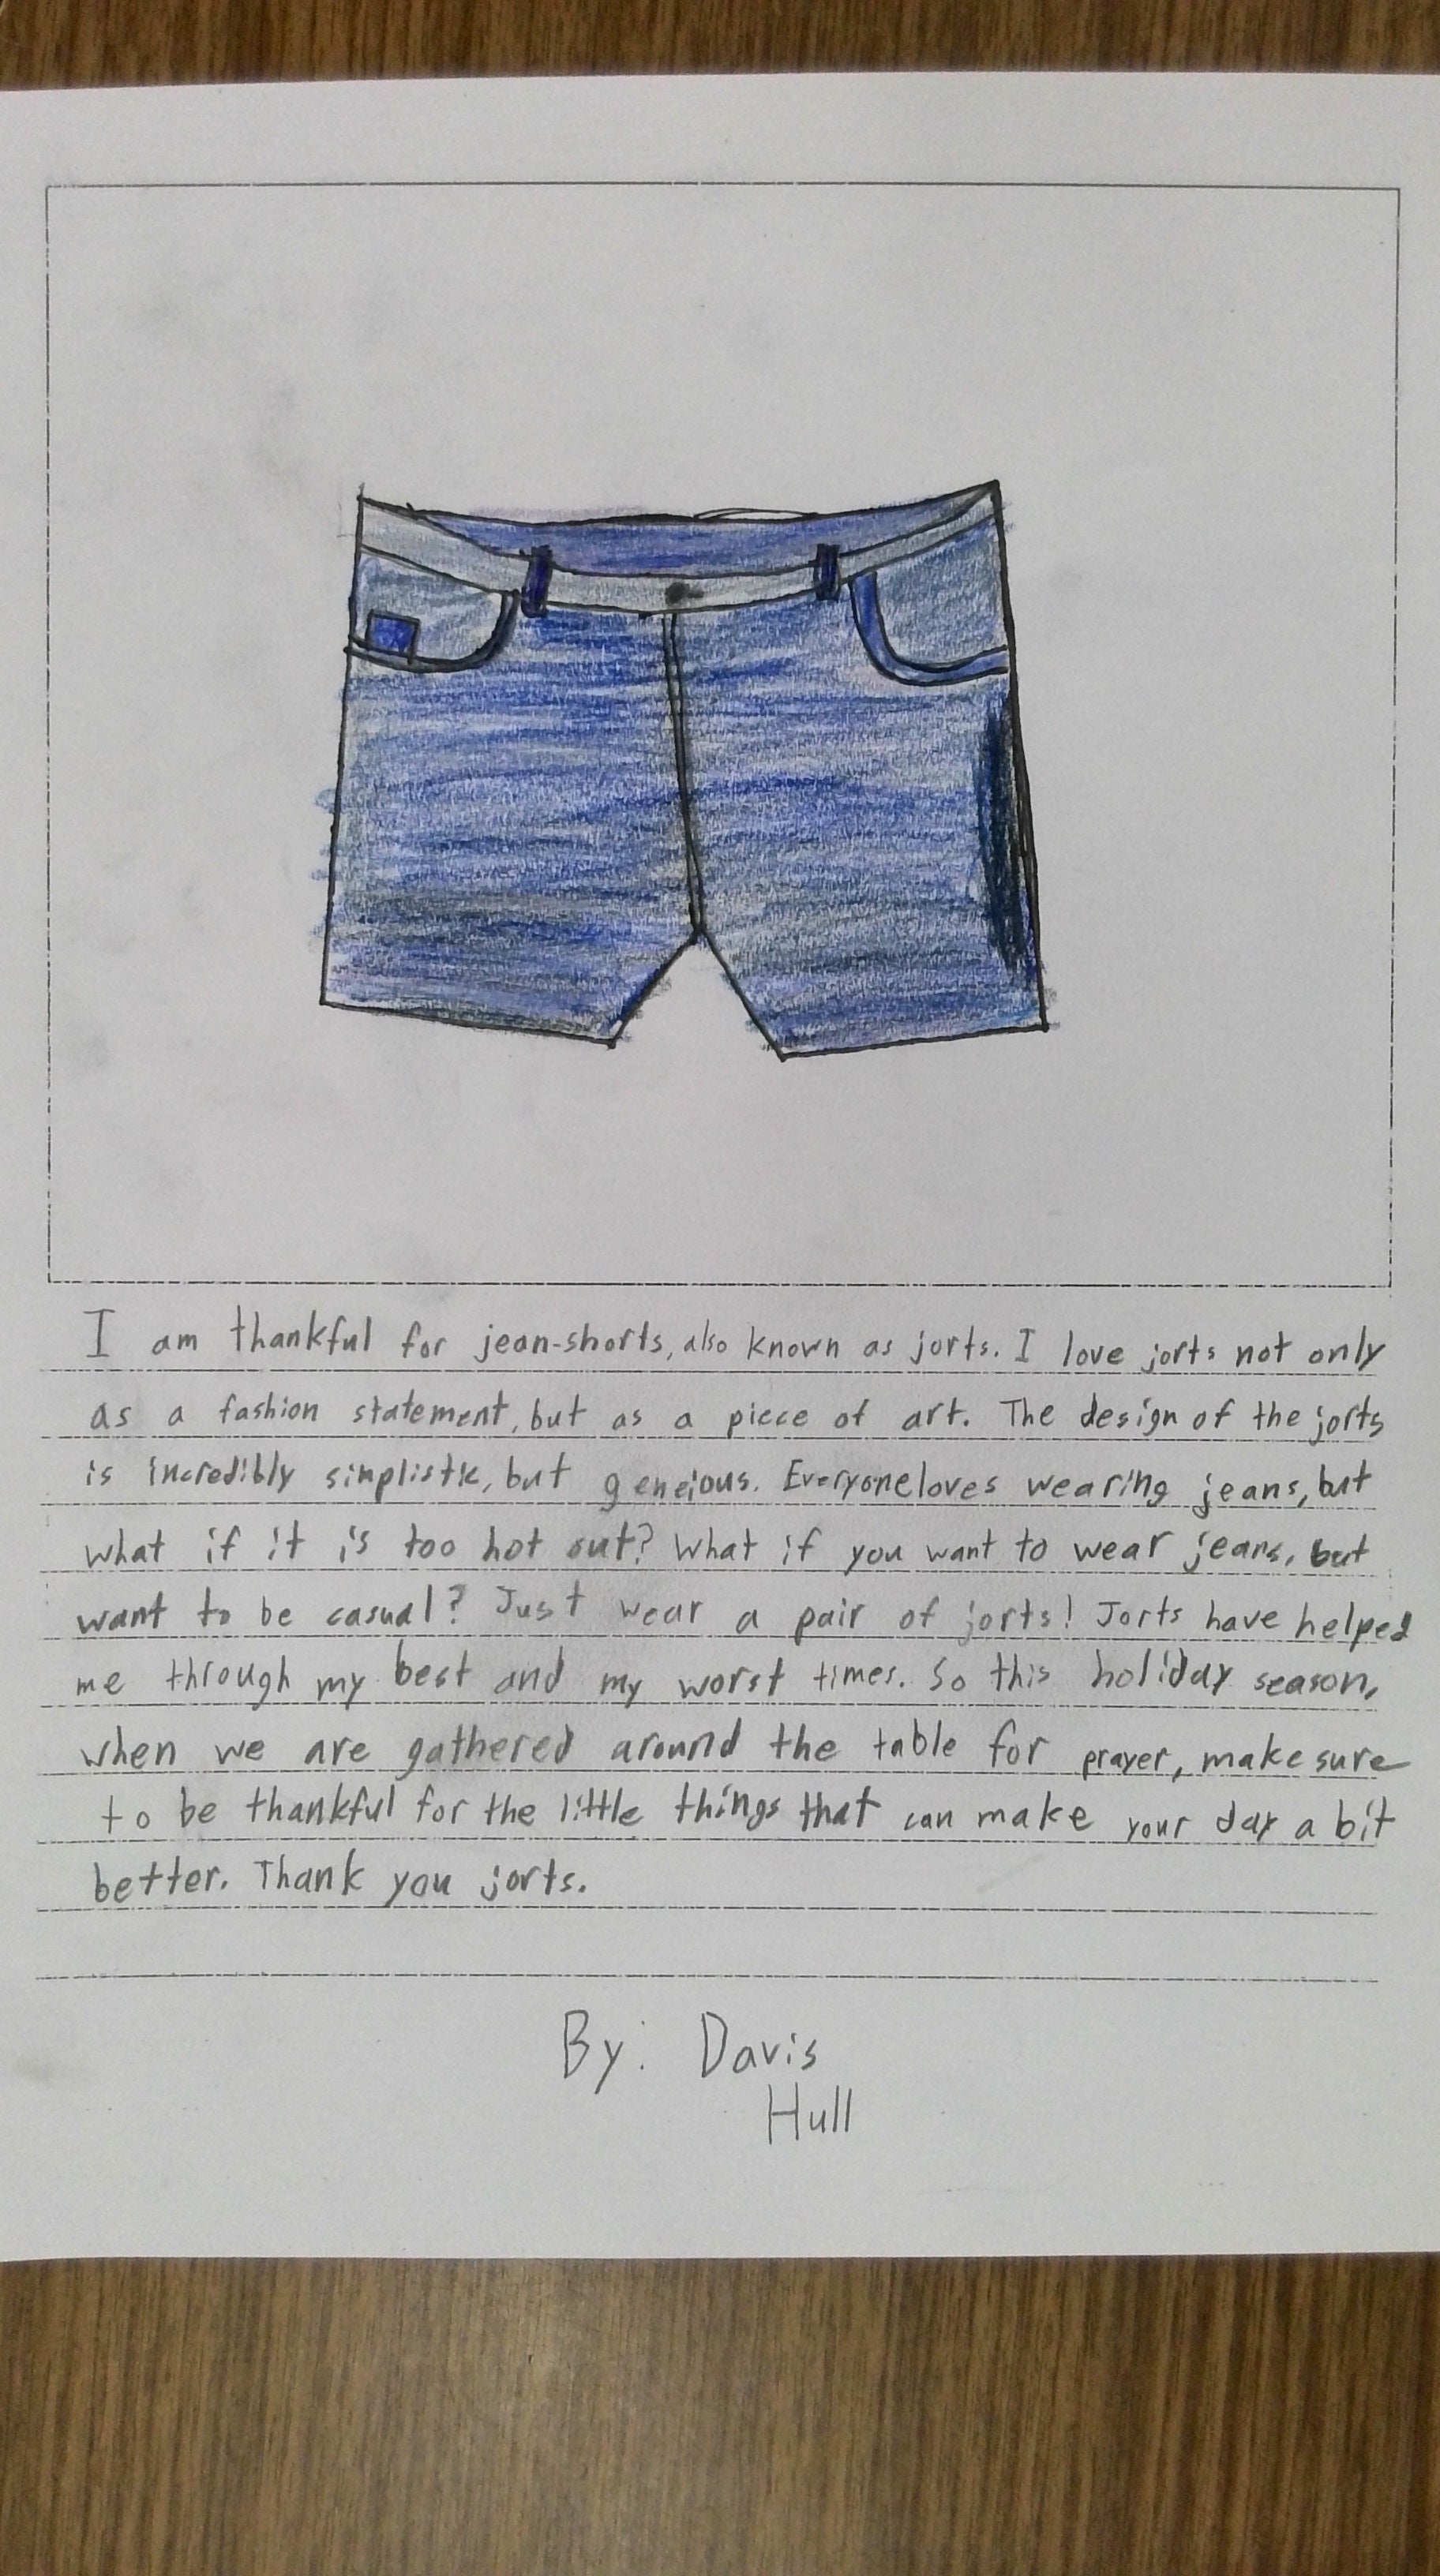 I am thankful for jean-shorts, also known as jorts. I love jorts not only
as a fashion statement, but as a piece of art. The design of the jorts
is incredibly simplistic, but geneious. Everyone loves wearing jeans, but
what if it is too hot out? What if you want to wear jeans, but
want to be casual? Just wear a pair of jorts! Jorts have helped
me through my best and my worst times. So this holiday season,
when we are gathered around the table for prayer, make sure
to be thankful for the little things that can make your day a bit
better. Thank you jorts.
By: Davis
Hull